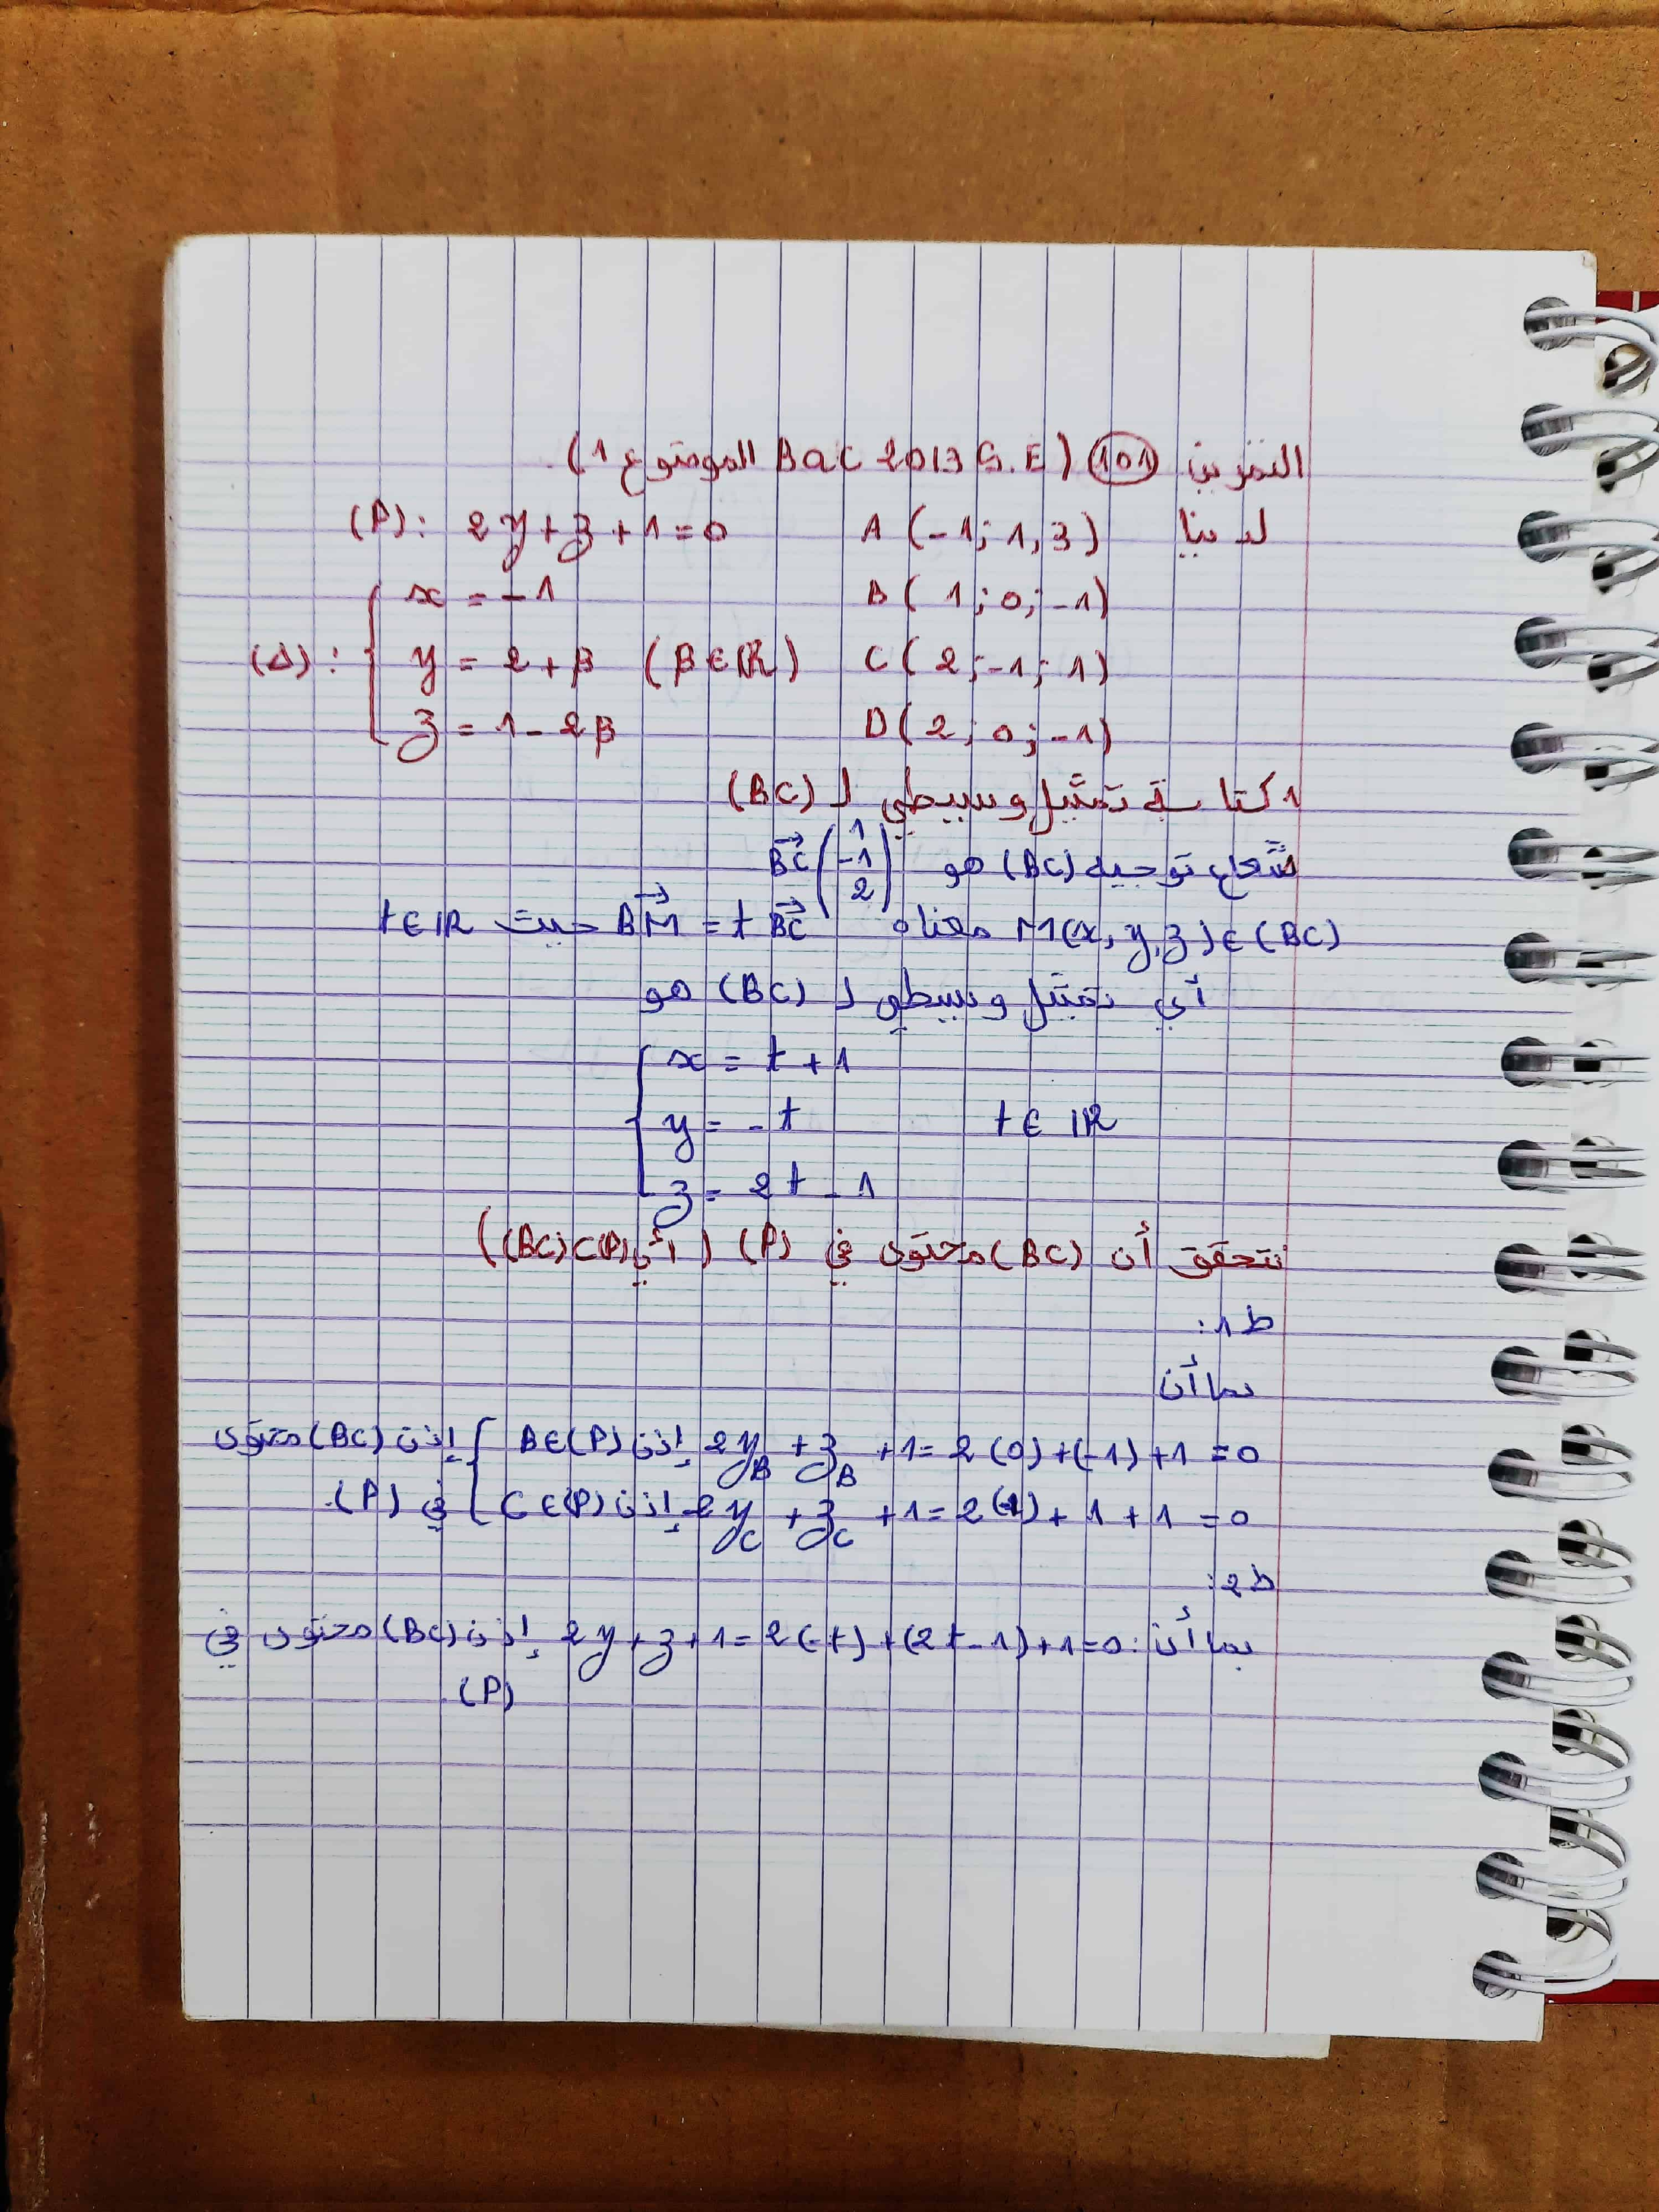 التمرين 101 (Bac 2013 S.E الموضوع 1).
لدينا A(-1; 1, 3) (P): 2y + z + 1 = 0
B(1; 0; -1) x = -1
C(2; -1; 1) (Δ): { y = 2 + β (β ∈ ℝ)
D(2; 0; -1) z = 1 - 2β
1 كتابة تمثيل وسيطي لـ (BC)
شعاع توجيه (BC) هو BC→ (1 -1 2)
M(x, y, z) ∈ (BC) معناه BM→ = t BC→ حيث t ∈ ℝ
أي تمثيل وسيطي لـ (BC) هو
x = t + 1
y = -t t ∈ ℝ
z = 2t - 1
نتحقق أن (BC) محتوى في (P) (أي (BC)⊂(P))
ط1:
بما أن
2y_B + z_B + 1 = 2(0) + (-1) + 1 = 0 إذن B∈(P) إذن (BC) محتوى
2y_C + z_C + 1 = 2(-1) + 1 + 1 = 0 إذن C∈(P) في (P).
ط2:
بما أن: 2y + z + 1 = 2(-t) + (2t - 1) + 1 = 0 إذن (BC) محتوى في
(P)